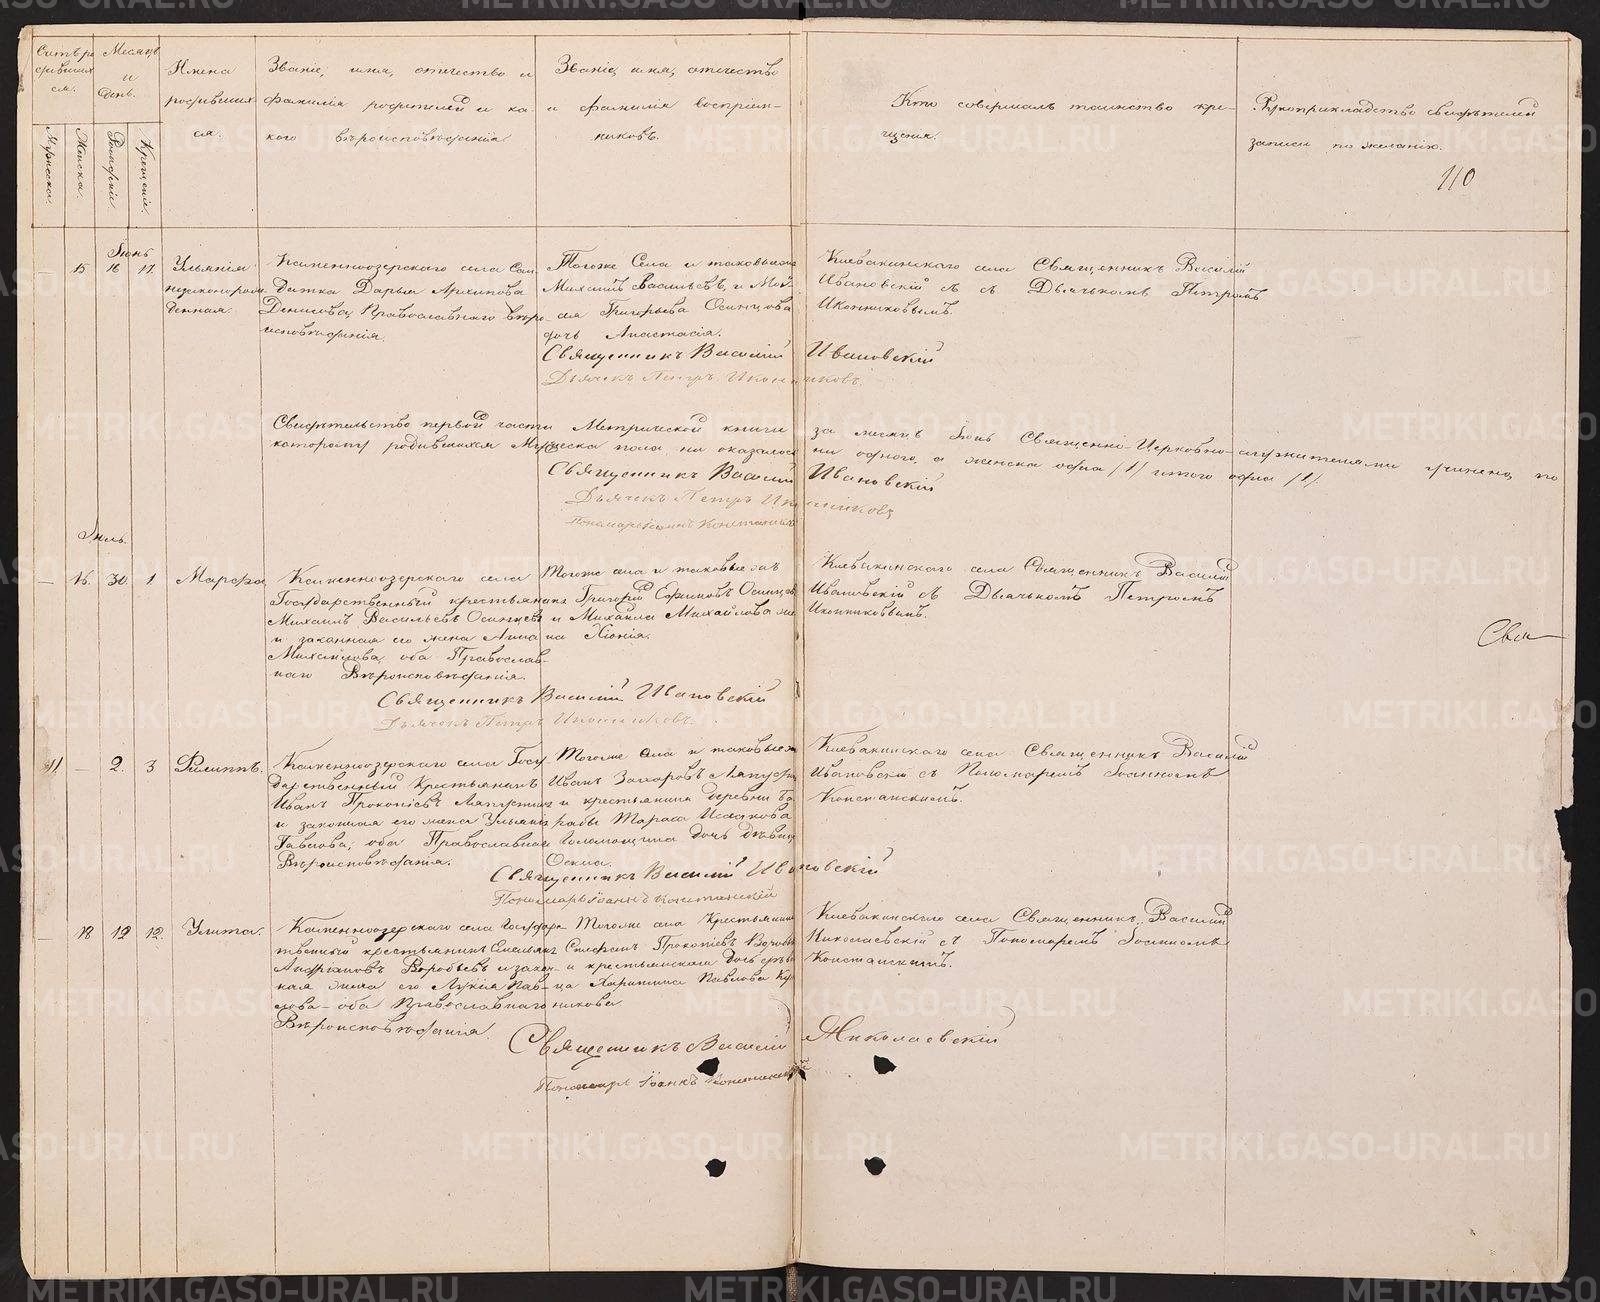 Счетъ ро
дивших
ся.
Месяцъ
и
день.
Мужска.
Женска.
Рожденія.
Крещенія.
Имена
родивших
ся.
Званіе, имя, отчество и
фамилія родителей и ка-
кого вѣроисповѣданія
Званіе, имя, отчество
и фамилія воспріем-
никовъ.
Кто совершалъ таинство кре-
щенія.
Рукоприкладство свидѣтелей
записи по желанію.
110
Іюнь
15 16 17.
Ульянія
незаконорож
денная.
Каменноозерскаго села Сол
датка Дарья Архипова
Денисова, Православнаго вѣро-
исповѣданія.
Тогоже Села и таковыхже
Михаилъ Васильевъ, и
Григорьева Осинцова
дочь Анастасія.
Клевакинскаго села Священникъ Василій
Ивановскій съ Дьячькомъ Петромъ
Иконниковымъ.
Священникъ Василій Ивановскій
Дьячекъ Петръ Иконниковъ.
Свидѣтельство первой части Метрической книги за месяцъ Іюнь Священно-Церковно-служителями учинено, по
которому родившихся Мужеска пола не оказалось ни одного, а женска одна /1/ итого одна /1/.
Священникъ Василій Ивановскій
Дьячекъ Петръ Иконниковъ
Пономарь Іоаннъ Констанскій
Іюль.
— 16. 30. 1
Марѳа
Каменноозерскаго села
Государственный крестьянинъ
Михаилъ Васильевъ Осинцевъ
и законная его жена Анна
Михайлова, оба Православ-
наго Вѣроисповѣданія.
Тогоже села и таковые жъ
Григорій Ефимовъ Осинцовъ
и Михаила Михайлова же
на Хіонія.
Клевакинскаго села Священникъ Василій
Ивановскій съ Дьячькомъ Петромъ
Иконниковымъ.
Свя
Священникъ Василій Ивановскій
Дьячекъ Петръ Иконниковъ.
11. — 2. 3
Филиппъ.
Каменноозерскаго села Госу-
дарственный Крестьянинъ
Иванъ Прокопіевъ Лапустинъ
и законная его жена Ульяна
Павлова, оба Православнаго
Вѣроисповѣданія.
Тогоже села и таковые ж
Иванъ Захаровъ Лапусти
и крестьянина деревни Ба
рабы Тараса Исакова
Голомощина дочь дѣвица
Ѳекла.
Клевакинскаго села Священникъ Василій
Ивановскій съ Пономаремъ Іоанномъ
Констанскимъ.
Священникъ Василій Ивановскій
Пономарь Іоаннъ Констанскій
— 18 12 12.
Улита.
Каменноозерскаго села Государ
твенный крестьянинъ Емельянъ
Воробьевъ и закон-
ная жена его Лукія Пав-
лова оба Православнаго
Вѣроисповѣданія.
Тогоже села Крестьянинъ
Стефанъ Прокопіевъ Воробье
и крестьянскаго дочь дѣви
ца Харитина Павлова Ку
никова
Клевакинскаго села Священникъ Василій
Николаевскій съ Пономаремъ Іоанномъ
Констанскимъ.
Священникъ Василій Николаевскій
Пономарь Іоаннъ Констанскій
METRIKI.GASO-URAL.RU